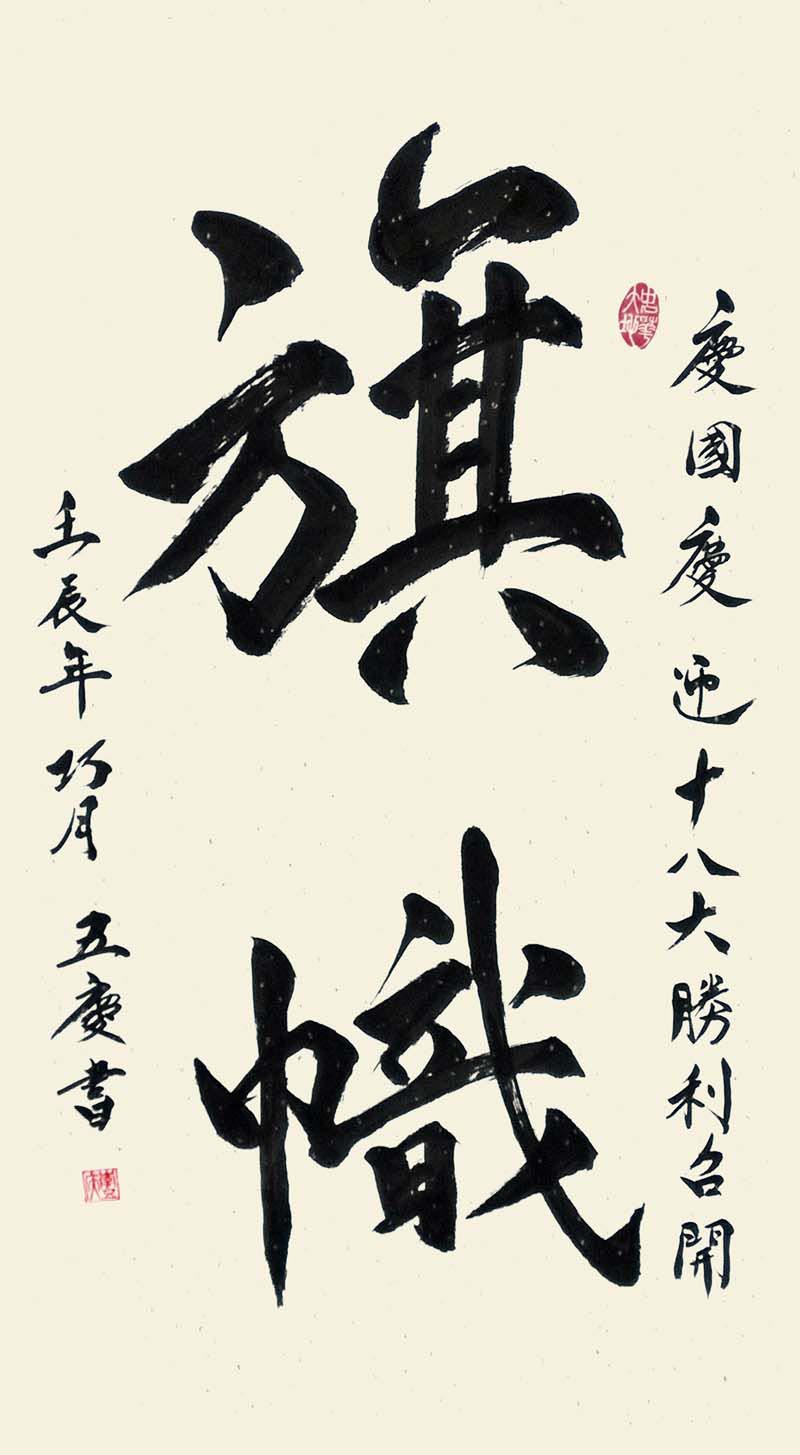 慶國慶 迎十八大勝利召開
旗幟
壬辰年 巧月 五慶書